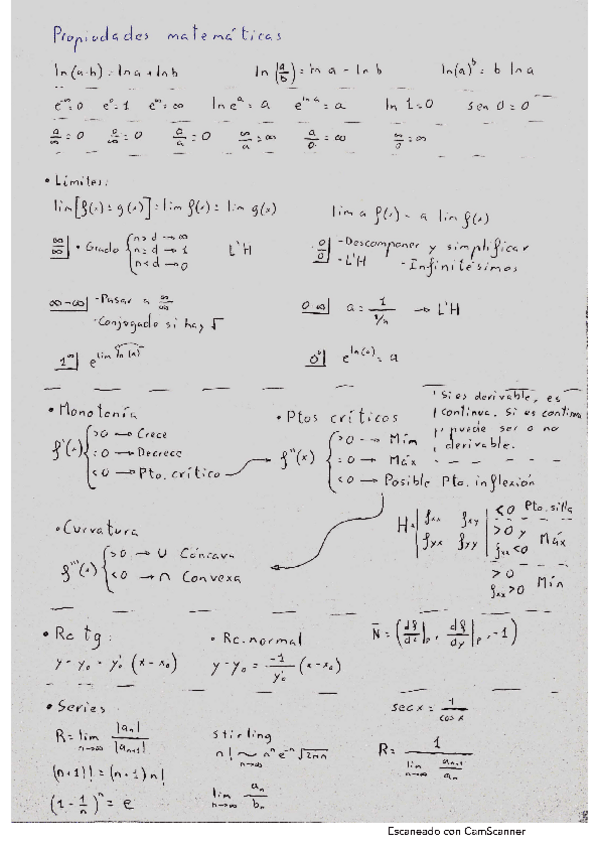 Propiedades matemáticas
ln(a·b) = ln a + ln b    ln(a/b) = ln a - ln b    ln(a)^b = b ln a
e^-∞ = 0  e^0 = 1  e^∞ = ∞  ln e^a = a  e^(ln a) = a  ln 1 = 0  sen 0 = 0
a/∞ = 0  0/∞ = 0  0/a = 0  ∞/a = ∞  a/0 = ∞  ∞/0 = ∞
• Límites:
lim[f(x) ± g(x)] = lim f(x) ± lim g(x)    lim a f(x) = a lim f(x)
∞/∞ • Grado { n>d → ∞    L'H
n=d → 1
n<d → 0
0/0 - Descomponer y simplificar
- L'H    - Infinitésimos
∞-∞ - Pasar a ∞/∞
- Conjugado si hay √
0·∞  a = 1/(1/a) → L'H
1^∞ e^lim
e^ln(a) = a
• Monotonía
f'(x) { >0 → Crece
=0 → Decrece
<0 → Pto. crítico
• Ptos críticos
f''(x) { >0 → Mín
=0 → Máx
<0 → Posible Pto. inflexión
Si es derivable, es
continua. Si es continua
puede ser o no
derivable.
• Curvatura
f'''(x) { >0 → ∪ Cóncava
<0 → ∩ Convexa
H = | fxx fxy |
| fyx fyy |
<0 Pto. silla
>0 y
fxx<0 Máx
>0
fxx>0 Mín
• Rc tg:
y - y₀ = y'₀ (x - x₀)
• Rc. normal
y - y₀ = -1/y'₀ (x - x₀)
N = (df/dx|p, df/dy|p, -1)
• Series
R = lim n→∞ |an|/|an+1|
(n+1)! = (n+1) n!
(1 - 1/n)^n = e
stirling
n! ~ n^n e^-n √2πn
n→∞
lim n→∞ an/bn
sec x = 1/cos x
R = 1/(lim n→∞ an+1/an)
Escaneado con CamScanner